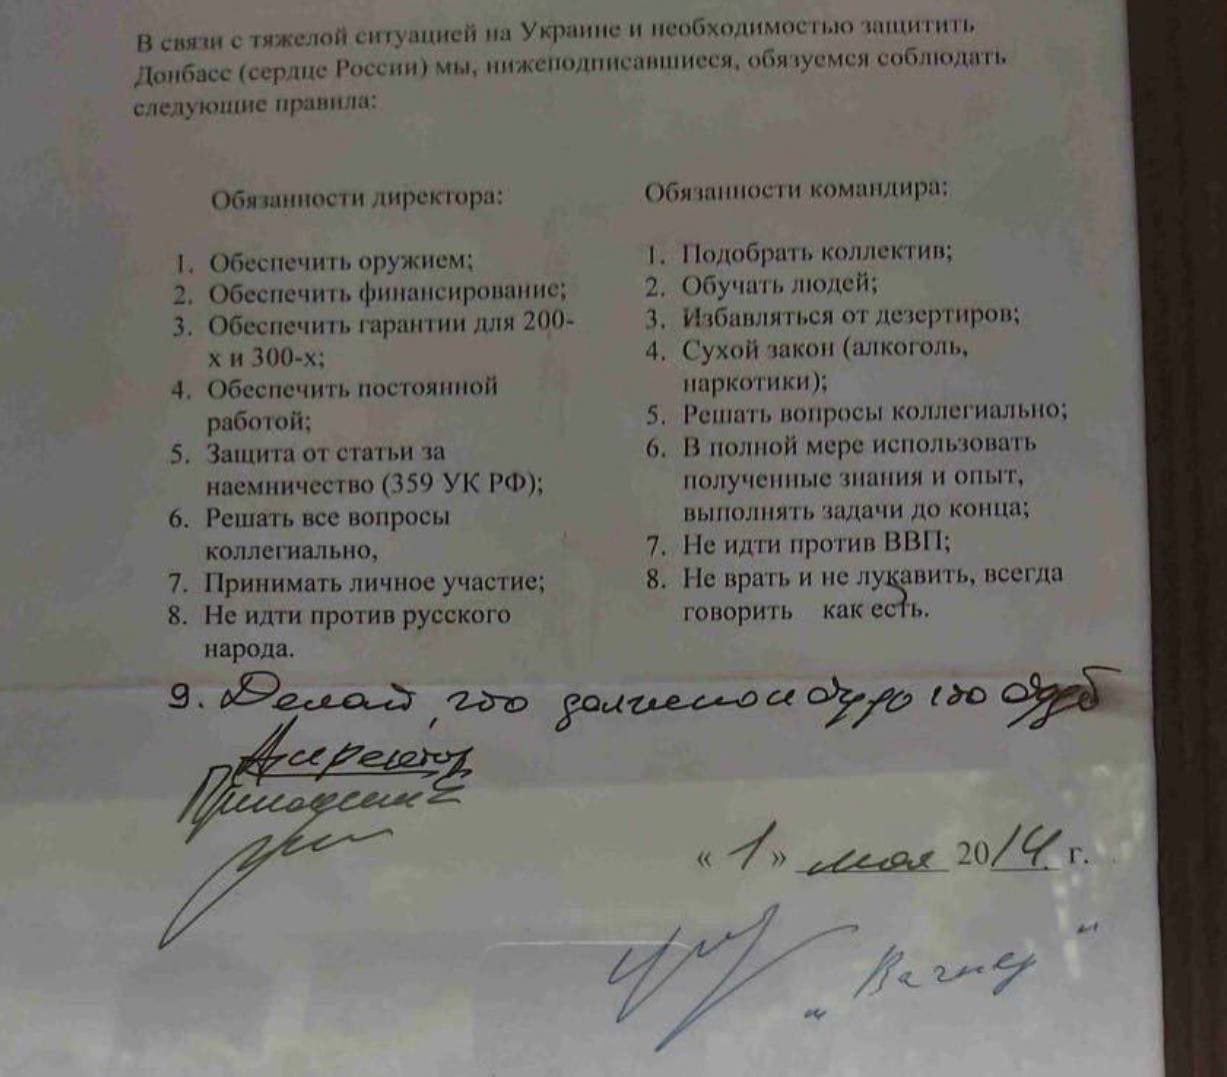 В связи с тяжелой ситуацией на Украине и необходимостью защитить
Донбасс (сердце России) мы, нижеподписавшиеся, обязуемся соблюдать
следующие правила:
Обязанности директора:
1. Обеспечить оружием;
2. Обеспечить финансирование;
3. Обеспечить гарантии для 200-
х и 300-х;
4. Обеспечить постоянной
работой;
5. Защита от статьи за
наемничество (359 УК РФ);
6. Решать все вопросы
коллегиально,
7. Принимать личное участие;
8. Не идти против русского
народа.
Обязанности командира:
1. Подобрать коллектив;
2. Обучать людей;
3. Избавляться от дезертиров;
4. Сухой закон (алкоголь,
наркотики);
5. Решать вопросы коллегиально;
6. В полной мере использовать
полученные знания и опыт,
выполнять задачи до конца;
7. Не идти против ВВП;
8. Не врать и не лукавить, всегда
говорить как есть.
9. Делай, что должно и будь что будет
Директор
Пригожин Е
« 1 » мая 2014 г.
„Вагнер“